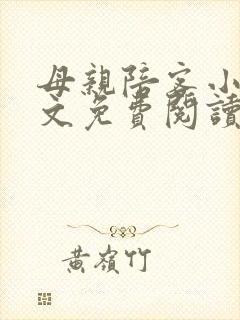 母親陪客小
文免費閱讀
黃嶺竹